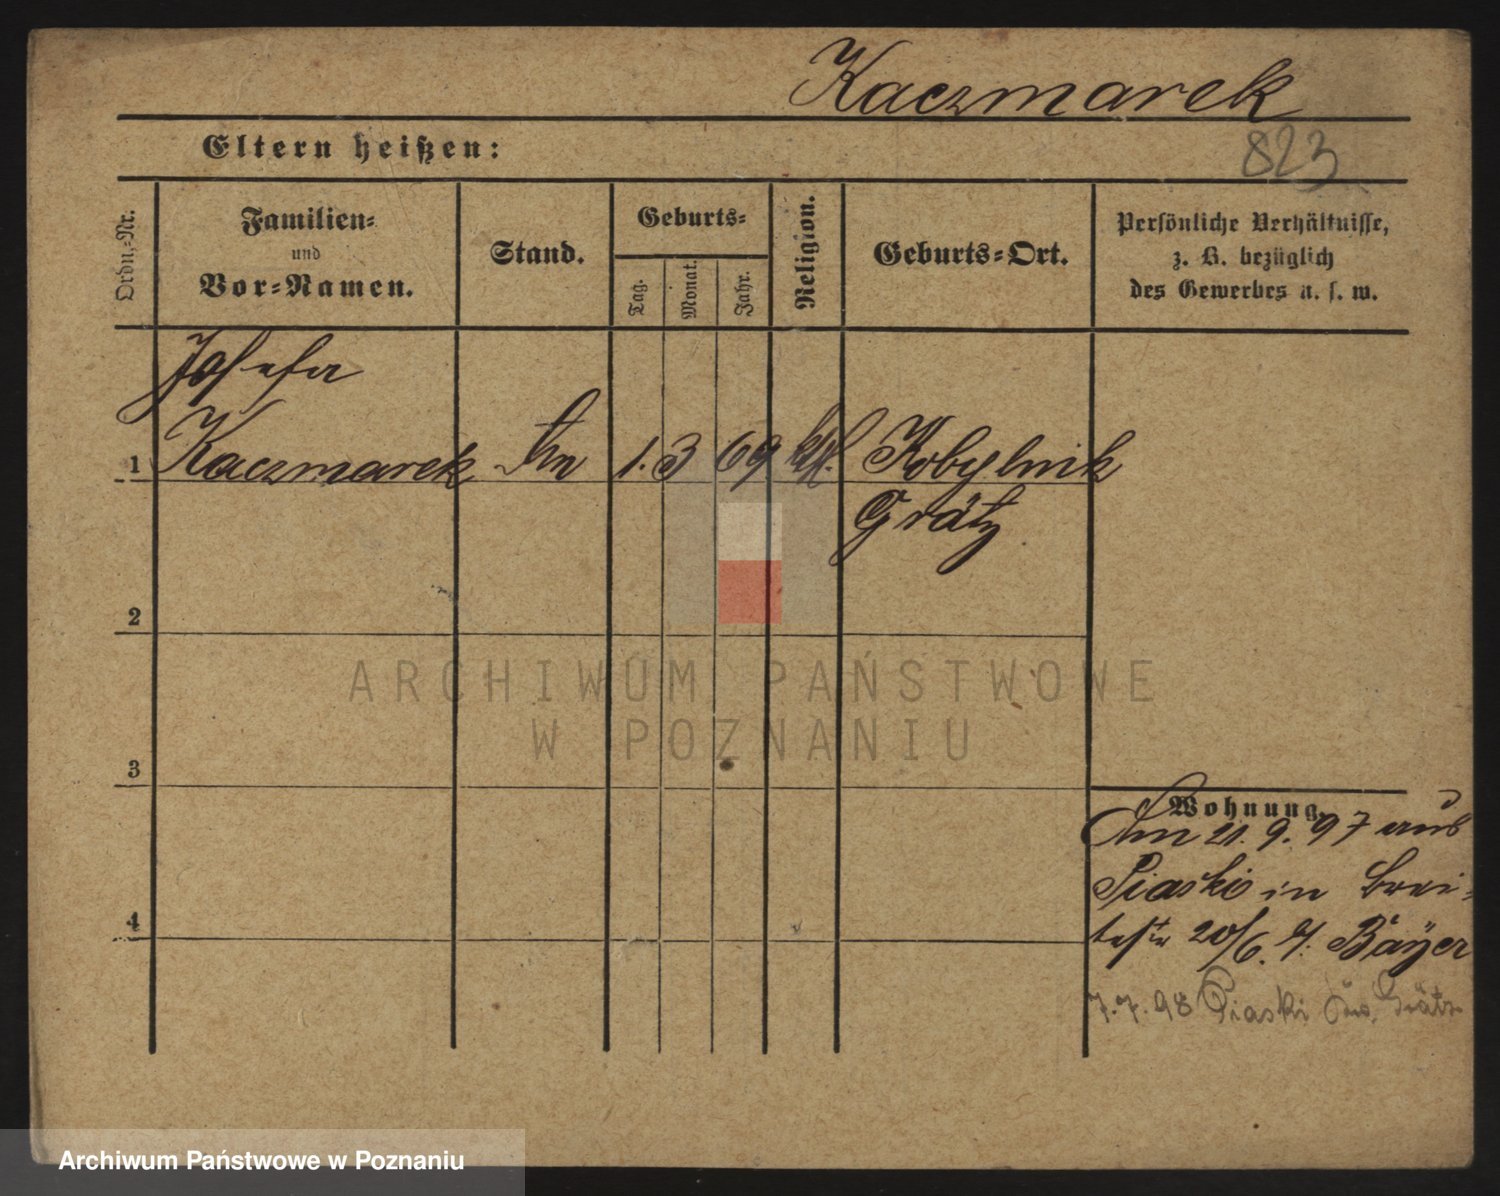 Kaczmarek
823
Eltern heißen:
Ordn.-Nr.
Familien-
und
Vor-Namen.
Stand.
Geburts-
Tag.
Monat.
Jahr.
Religion.
Geburts-Ort.
Persönliche Verhältnisse,
z. B. bezüglich
des Gewerbes u. s. w.
Josefa
1 Kaczmarek 1. 3 69 kth. Kobylnik
Grätz
2
3
4
Wohnung.
Am 21. 9. 97 aus
Piaski in Brei-
testr 20/6. b/. Bayer
7.7.98 Piaski Grätz
ARCHIWUM PAŃSTWOWE
W POZNANIU
Archiwum Państwowe w Poznaniu